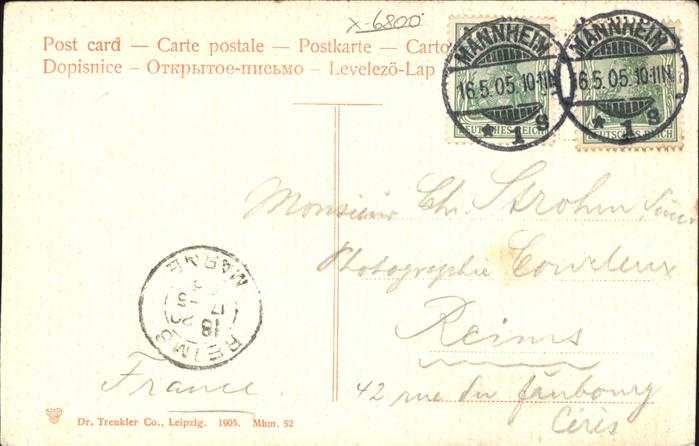 x-6800
Post card — Carte postale — Postkarte — Carto
Dopisnice — Открытое-письмо — Levelező-Lap
MANNHEIM
16.5.05.10-11N.
* 1 g
DEUTSCHES REICH
MANNHEIM
16.5.05.10-11N.
* 1 g
DEUTSCHES REICH
Monsieur Chr. Strohm
Photographie
Reims
42 rue du faubourg
Cérès
France.
REIMS
MARNE
Dr. Trenkler Co., Leipzig. 1905. Mhm. 52